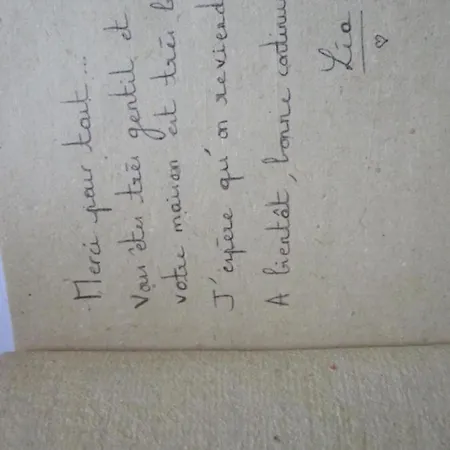 Merci pour tout...
Vous êtes très gentil et
votre maison est très
J'espère qu'on
A bientôt, bonne
Léa